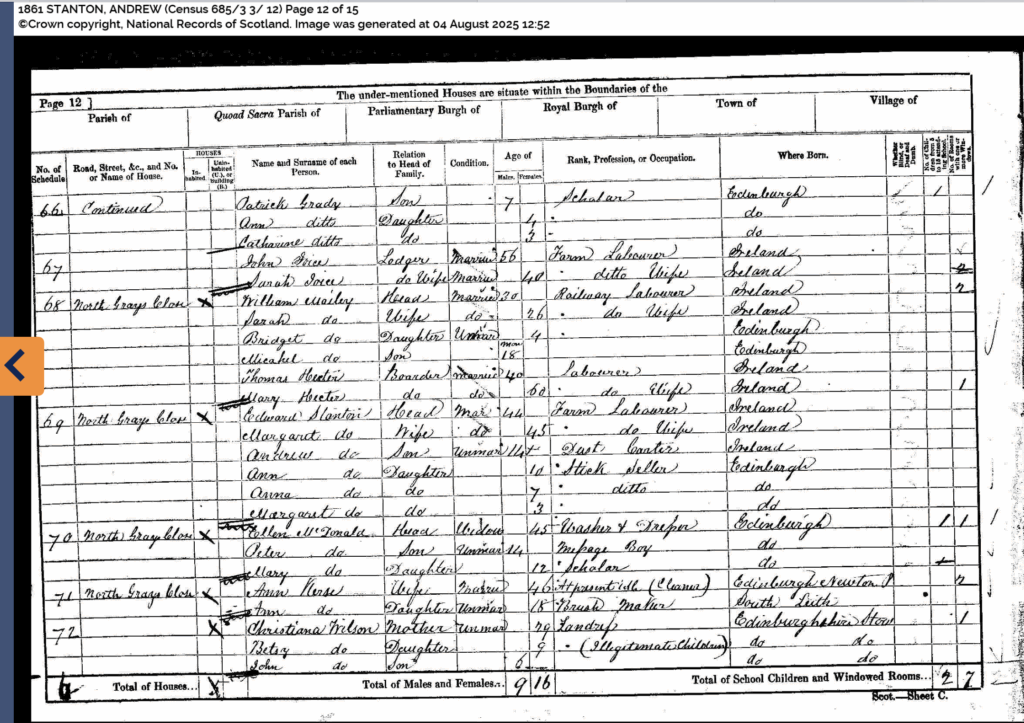 1861 STANTON, ANDREW (Census 685/3 3/ 12) Page 12 of 15
©Crown copyright, National Records of Scotland. Image was generated at 04 August 2025 12:52
Page 12 ] The under-mentioned Houses are situate within the Boundaries of the
Parish of Quoad Sacra Parish of Parliamentary Burgh of Royal Burgh of Town of Village of
No. of Schedule Road, Street, &c., and No. or Name of House. HOUSES Inhabited Uninhabited (U.), or Building (B.) Name and Surname of each Person. Relation to Head of Family. Condition. Age of Males. Females. Rank, Profession, or Occupation. Where Born.
66 Continued Patrick Grady Son 7 Scholar Edinburgh 1
Ann ditto Daughter 4 do
Catharine ditto do 3 do
67 John Joice Lodger Married 56 Farm Labourer Ireland
Sarah Joice do Wife Married 40 ditto Wife Ireland 2
68 North Grays Close X William Head Married 30 Railway Labourer Ireland 2
Sarah do Wife do 26 do Wife Ireland
Bridget do Daughter Unmar 4 Edinburgh
Micahel do Son Mon 18 Edinburgh
Thomas Boarder Married 40 Labourer Ireland
Mary do do 60 do Wife Ireland 1
69 North Grays Close X Edward Stanton Head Mar 44 Farm Labourer Ireland
Margaret do Wife do 45 do Wife Ireland
Andrew do Son Unmar 14 Dust Ireland
Ann do Daughter 10 Stick Seller Edinburgh
Anna do do 7 ditto do
Margaret do do 3 do
70 North Grays Close X Ellen McDonald Head Widow 45 Washer & Dresser Edinburgh 1 1
Peter do Son Unmar 14 Message Boy do
Mary do Daughter 12 Scholar do
71 North Grays Close X Ann Wife Married 46 (Cleaner) Edinburgh Newton 2
Ann do Daughter Unmar 18 Brush Maker South Leith
72 X Christiana Wilson Mother Unmar 29 Edinburghshire Stow 1
Betsy do Daughter 9 (Illegitimate Children) do do
John do Son 6 do do
6 Total of Houses... X Total of Males and Females... 9 16 Total of School Children and Windowed Rooms... 2 7
Scot.—Sheet C.